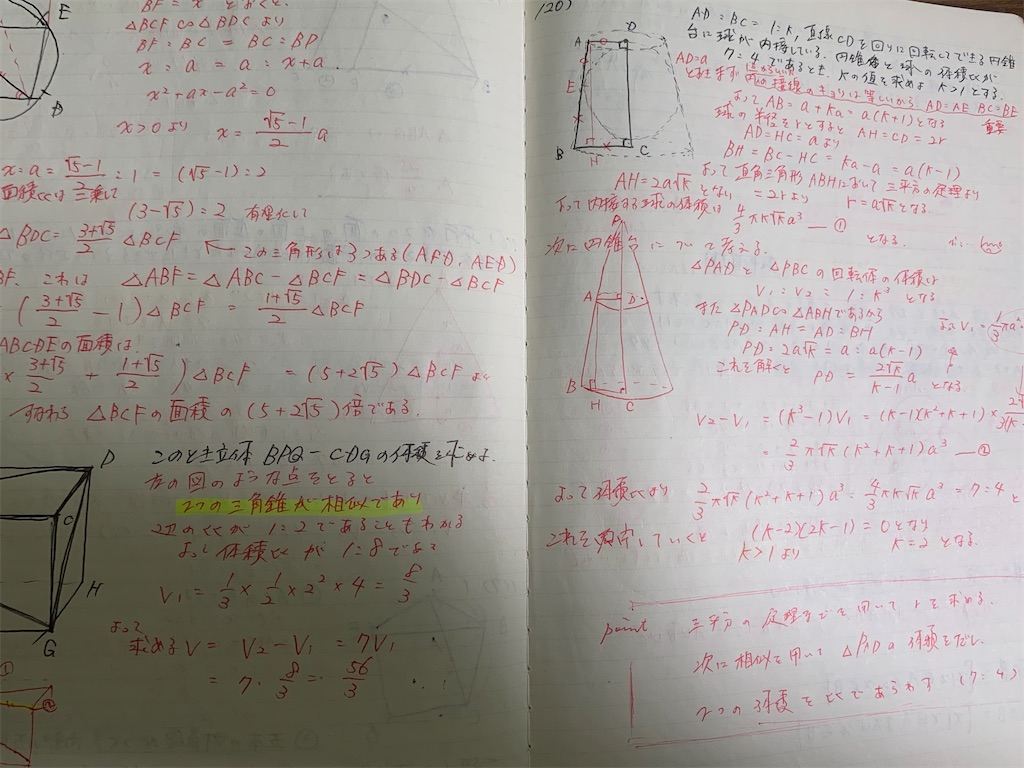 E
BF = x とおくと.
△BCF ∽ △BDC より
BF : BC = BC : BD
x : a = a : x+a
D
x² + ax - a² = 0
x > 0 より x = (√5-1)/2 a
x : a = (√5-1)/2 : 1 = (√5-1) : 2
面積比は二乗して
(3-√5) : 2 有理化して
△BDC = (3+√5)/2 △BCF ← この三角形は3つある (AFD, AED)
BF. これは △ABF = △ABC - △BCF = △BDC - △BCF
((3+√5)/2 - 1) △BCF = (1+√5)/2 △BCF
ABCDEの面積は
× (3+√5)/2 + (1+√5)/2 ) △BCF = (5+2√5) △BCF より
すなわち △BCFの面積の (5+2√5) 倍である.
D
C
H
G
このとき立体 BPQ-CDGの体積を求めよ.
左の図のような点をとると
2つの三角錐が相似であり
辺の比が 1:2であることもわかる
よって体積比が 1:8であって
V₁ = 1/3 × 1/2 × 2² × 4 = 8/3
よって
求める V = V₂ - V₁ = 7V₁
= 7・8/3 = 56/3
①
②
120)
AD : BC = 1 : k, 直線CDを回りに回転してできる円錐
台に球が内接している. 円錐台と球の体積比が
7 : 4 であるとき, kの値を求めよ k>1とする.
A
D
E
B
H
C
AD = a
とおきます 円の接線のキョリは等しいから. AD = AE BC = BE
重要
よって AB = a + ka = a(k+1) となる
球の半径をrとすると AH = CD = 2r
AD = HC = a より
BH = BC - HC = ka - a = a(k-1)
よって 直角三角形 ABH において 三平方の定理より
AH = 2a√k となり = 2r より r = a√k となる.
よって内接する球の体積は 4/3 πk√k a³ ―①
となる.
次に円錐台について考える.
P
A
D
B
H
C
△PAD と △PBC の回転体の体積は
V₁ : V₂ = 1 : k³ となる
また △PAD ∽ △ABH であるから
PD : AH = AD : BH
よって V₁ = 1/3 πa²
PD : 2a√k = a : a(k-1)
これを解くと PD = 2√k/(k-1) a となる.
V₂ - V₁ = (k³-1)V₁ = (k-1)(k²+k+1) ×
= 2/3 π√k (k²+k+1) a³ ―②
よって 体積比より 2/3 π√k (k²+k+1) a³ : 4/3 πk√k a³ = 7 : 4 と
これを していくと (k-2)(2k-1) = 0 となり
k>1 より k = 2 となる.
point 三平方の定理などを用いて rを求める.
次に相似を用いて △PADの体積をだし
2つの体積を比であらわす (7:4)